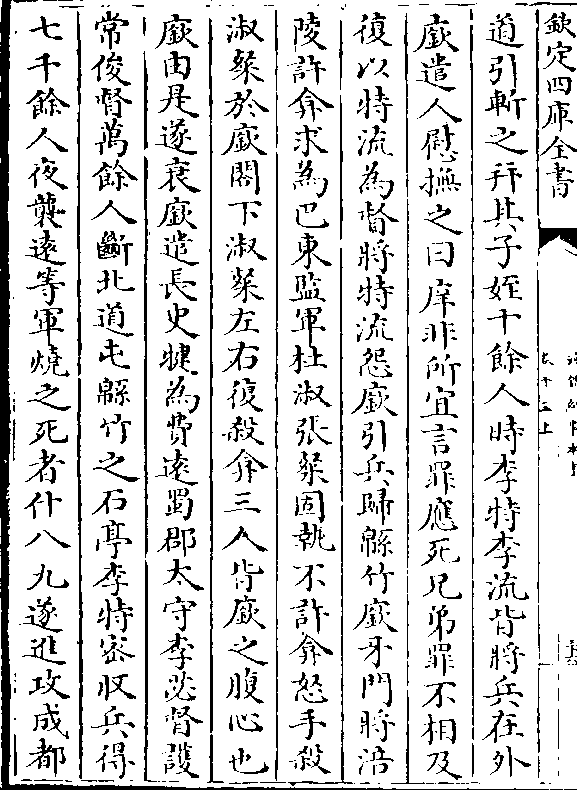 欽定四庫全書
道引斬之并其子姪十餘人時李特李流皆將兵在外
廞遣人慰撫之曰庠非所宜言罪應死兄弟罪不相及
復以特流為督將特流怨廞引兵歸緜竹廞牙門將涪
陵許弇求為巴東監軍杜淑張粲固執不許弇怒手殺
淑粲於廞閤下淑粲左右復殺弇三人皆廞之腹心也
廞由是遂衰廞遣長史犍為費逺蜀郡太守李苾督護
常俊督萬餘人斷北道屯緜竹之石亭李特宻収兵得
七千餘人夜襲逺等軍燒之死者什八九遂進攻成都